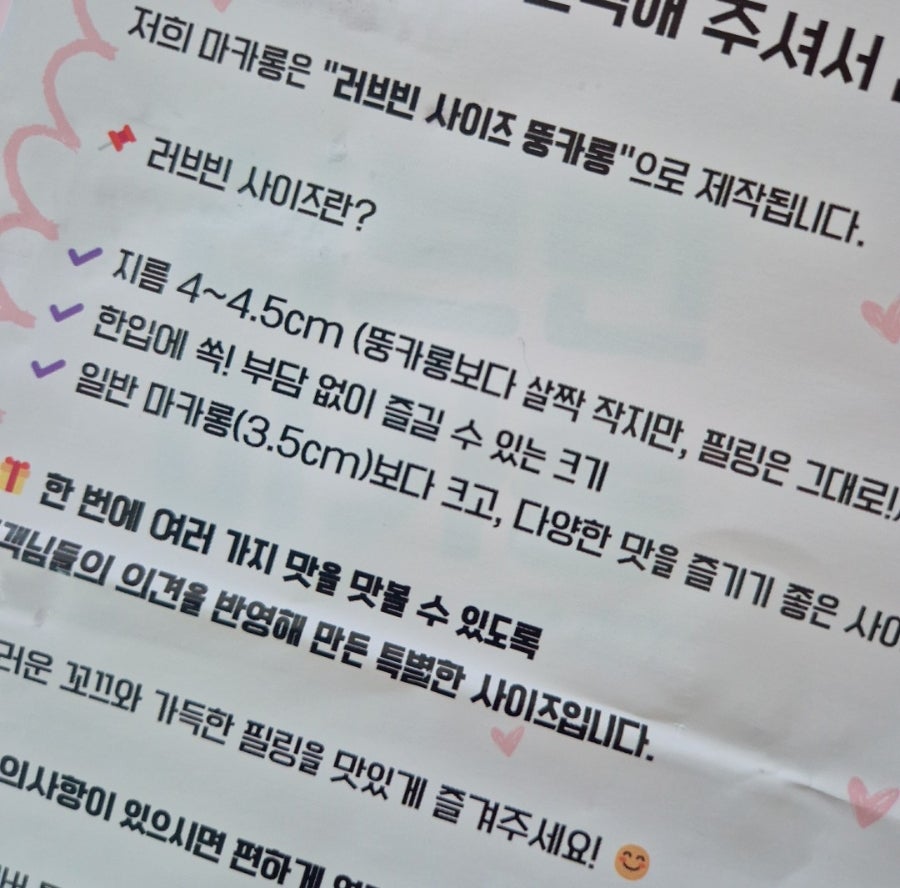 주셔서
저희 마카롱은 "러브빈 사이즈 뚱카롱"으로 제작됩니다.
📌 러브빈 사이즈란?
✔ 지름 4~4.5cm (뚱카롱보다 살짝 작지만, 필링은 그대로!)
✔ 한입에 쏙! 부담 없이 즐길 수 있는 크기
✔ 일반 마카롱(3.5cm)보다 크고, 다양한 맛을 즐기기 좋은 사이
🎁 한 번에 여러 가지 맛을 맛볼 수 있도록
객님들의 의견을 반영해 만든 특별한 사이즈입니다.
러운 꼬끄와 가득한 필링을 맛있게 즐겨주세요! 😊
의사항이 있으시면 편하게